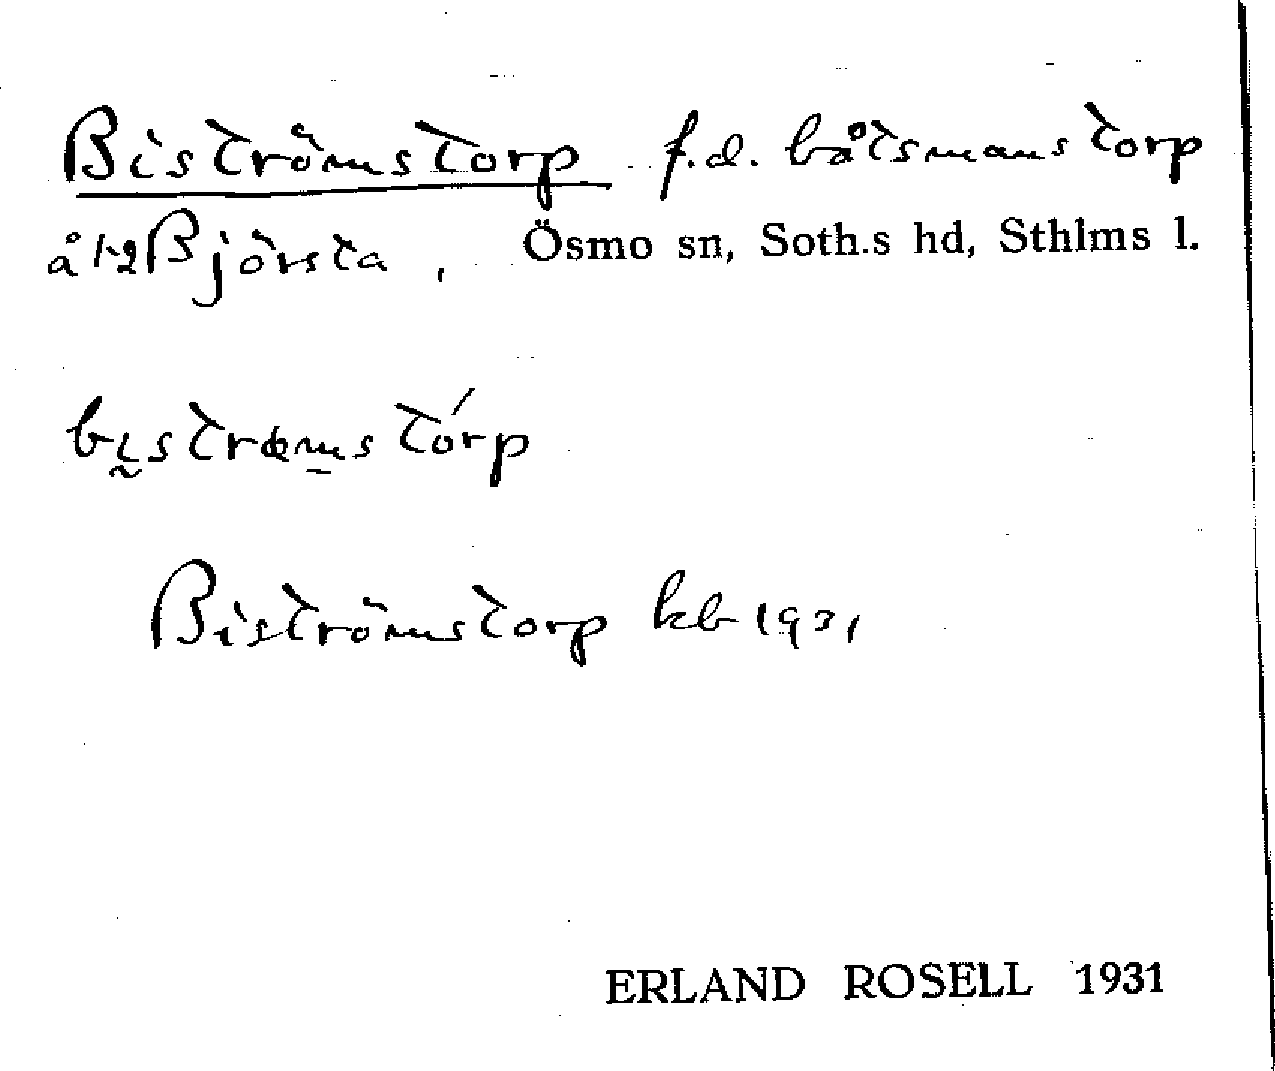 Biströmstorp f.d. båtsmanstorp
å 1-2 Björsta, Ösmo sn, Soth.s hd, Sthlms l.
bı̰strœm̱stórp
Biströmstorp kb 1931
ERLAND ROSELL 1931